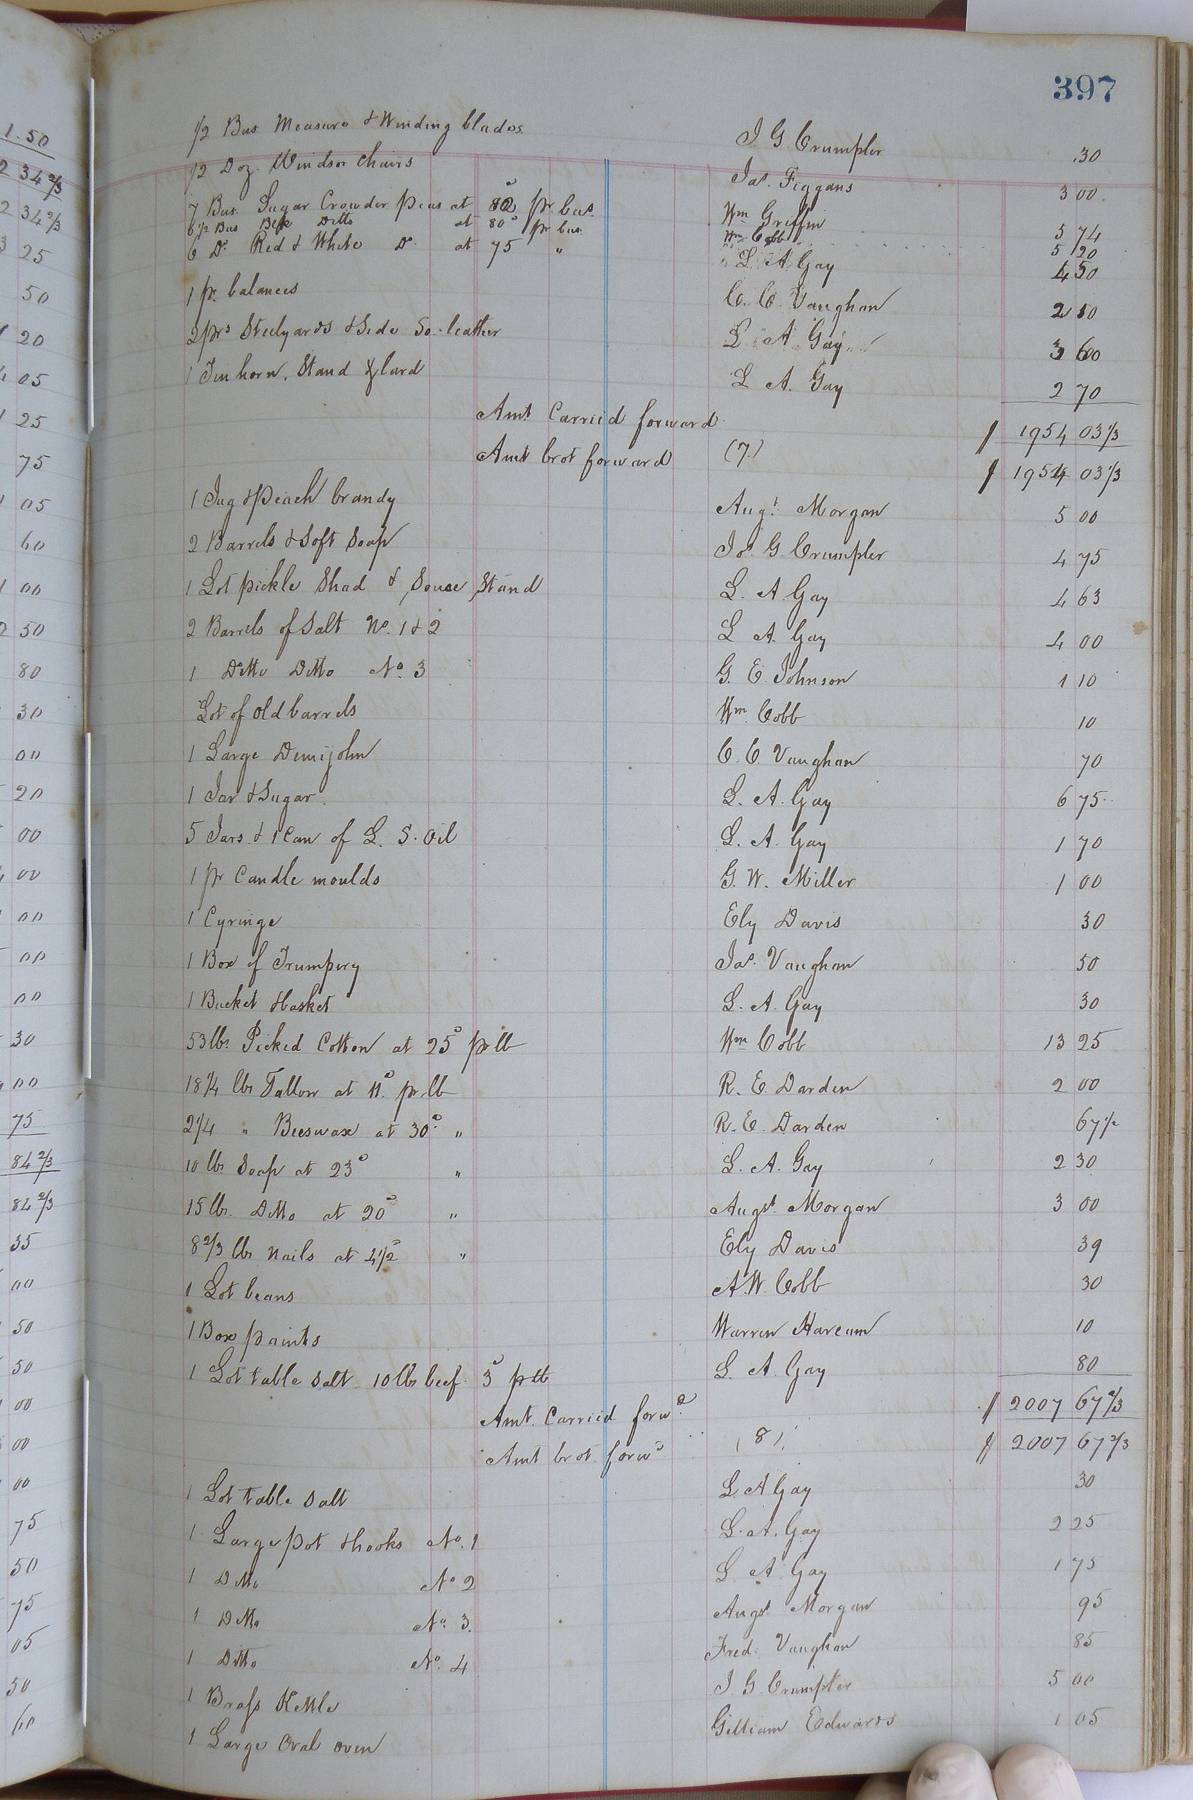 397
1/2 Bus Measure & Winding blades J G Crumpler .30
1/2 Doz. Windsor Chairs Jas. Figgans 3 00
7 Bus. Sugar Crowder peas at 82c pr bus Wm Griffin 5 74
6 1/2 Bus Blk Ditto at 80c pr bus Wm Cobb 5 20
6 Do Red & White Do at 75 " L A Gay 4 50
1 pr. balances C. C. Vaughan 2 50
2 prs Steelyards & side So. leather L. A. Gay 3 60
1 Tin horn, Stand & lard L A. Gay 2 70
Amt Carried forward $ 1954 03 1/3
Amt brot forward (7) $ 1954 03 1/3
1 Jug & Peach brandy Augt. Morgan 5 00
2 Barrels & Soft Soap Jos G Crumpler 4 75
1 Lot pickle Shad & Souse Stand L. A Gay 4 63
2 Barrels of Salt No. 1 & 2 L A. Gay 4 00
1 Ditto Ditto No. 3 G. E. Johnson 1 10
Lot of old barrels Wm Cobb 10
1 Large Demijohn C. C Vaughan 70
1 Jar & Sugar L. A. Gay 6 75
5 Jars & 1 Can of L. S. Oil L. A. Gay 1 70
1 pr Candle moulds G. W. Miller 1 00
1 Cyringe Ely Davis 30
1 Box of Trumpery Jas. Vaughan 50
1 Bucket & basket L. A. Gay 30
53 lbs Picked Cotton at 25c pr lb Wm Cobb 13 25
18 1/4 lbs Tallow at 11c pr lb R. E Darden 2 00
2 1/4 " Beeswax at 30c " R. E. Darden 67 1/2
10 lbs Soap at 23c " L. A. Gay 2 30
15 lbs. Ditto at 20c " Augst. Morgan 3 00
8 2/3 lbs nails at 4 1/2c " Ely Davis 39
1 Lot beans A. W. Cobb 30
1 Box paints Warren Harcum 10
1 Lot table salt 10 lbs beef 5c p lb L. A. Gay 80
Amt. Carried forwd $ 2007 67 2/3
Amt brot forwd (8) $ 2007 67 2/3
1 Lot table salt L. A Gay 30
1 Large pot & hooks No. 1 L. A. Gay 2 25
1 Ditto No 2 L A Gay 1 75
1 Ditto No. 3. Augst. Morgan 95
1 Ditto No. 4 Fred. Vaughan 85
1 Brass Kettle J G. Crumpler 5 00
1 Large Oval oven Gilliam Edwards 1 05